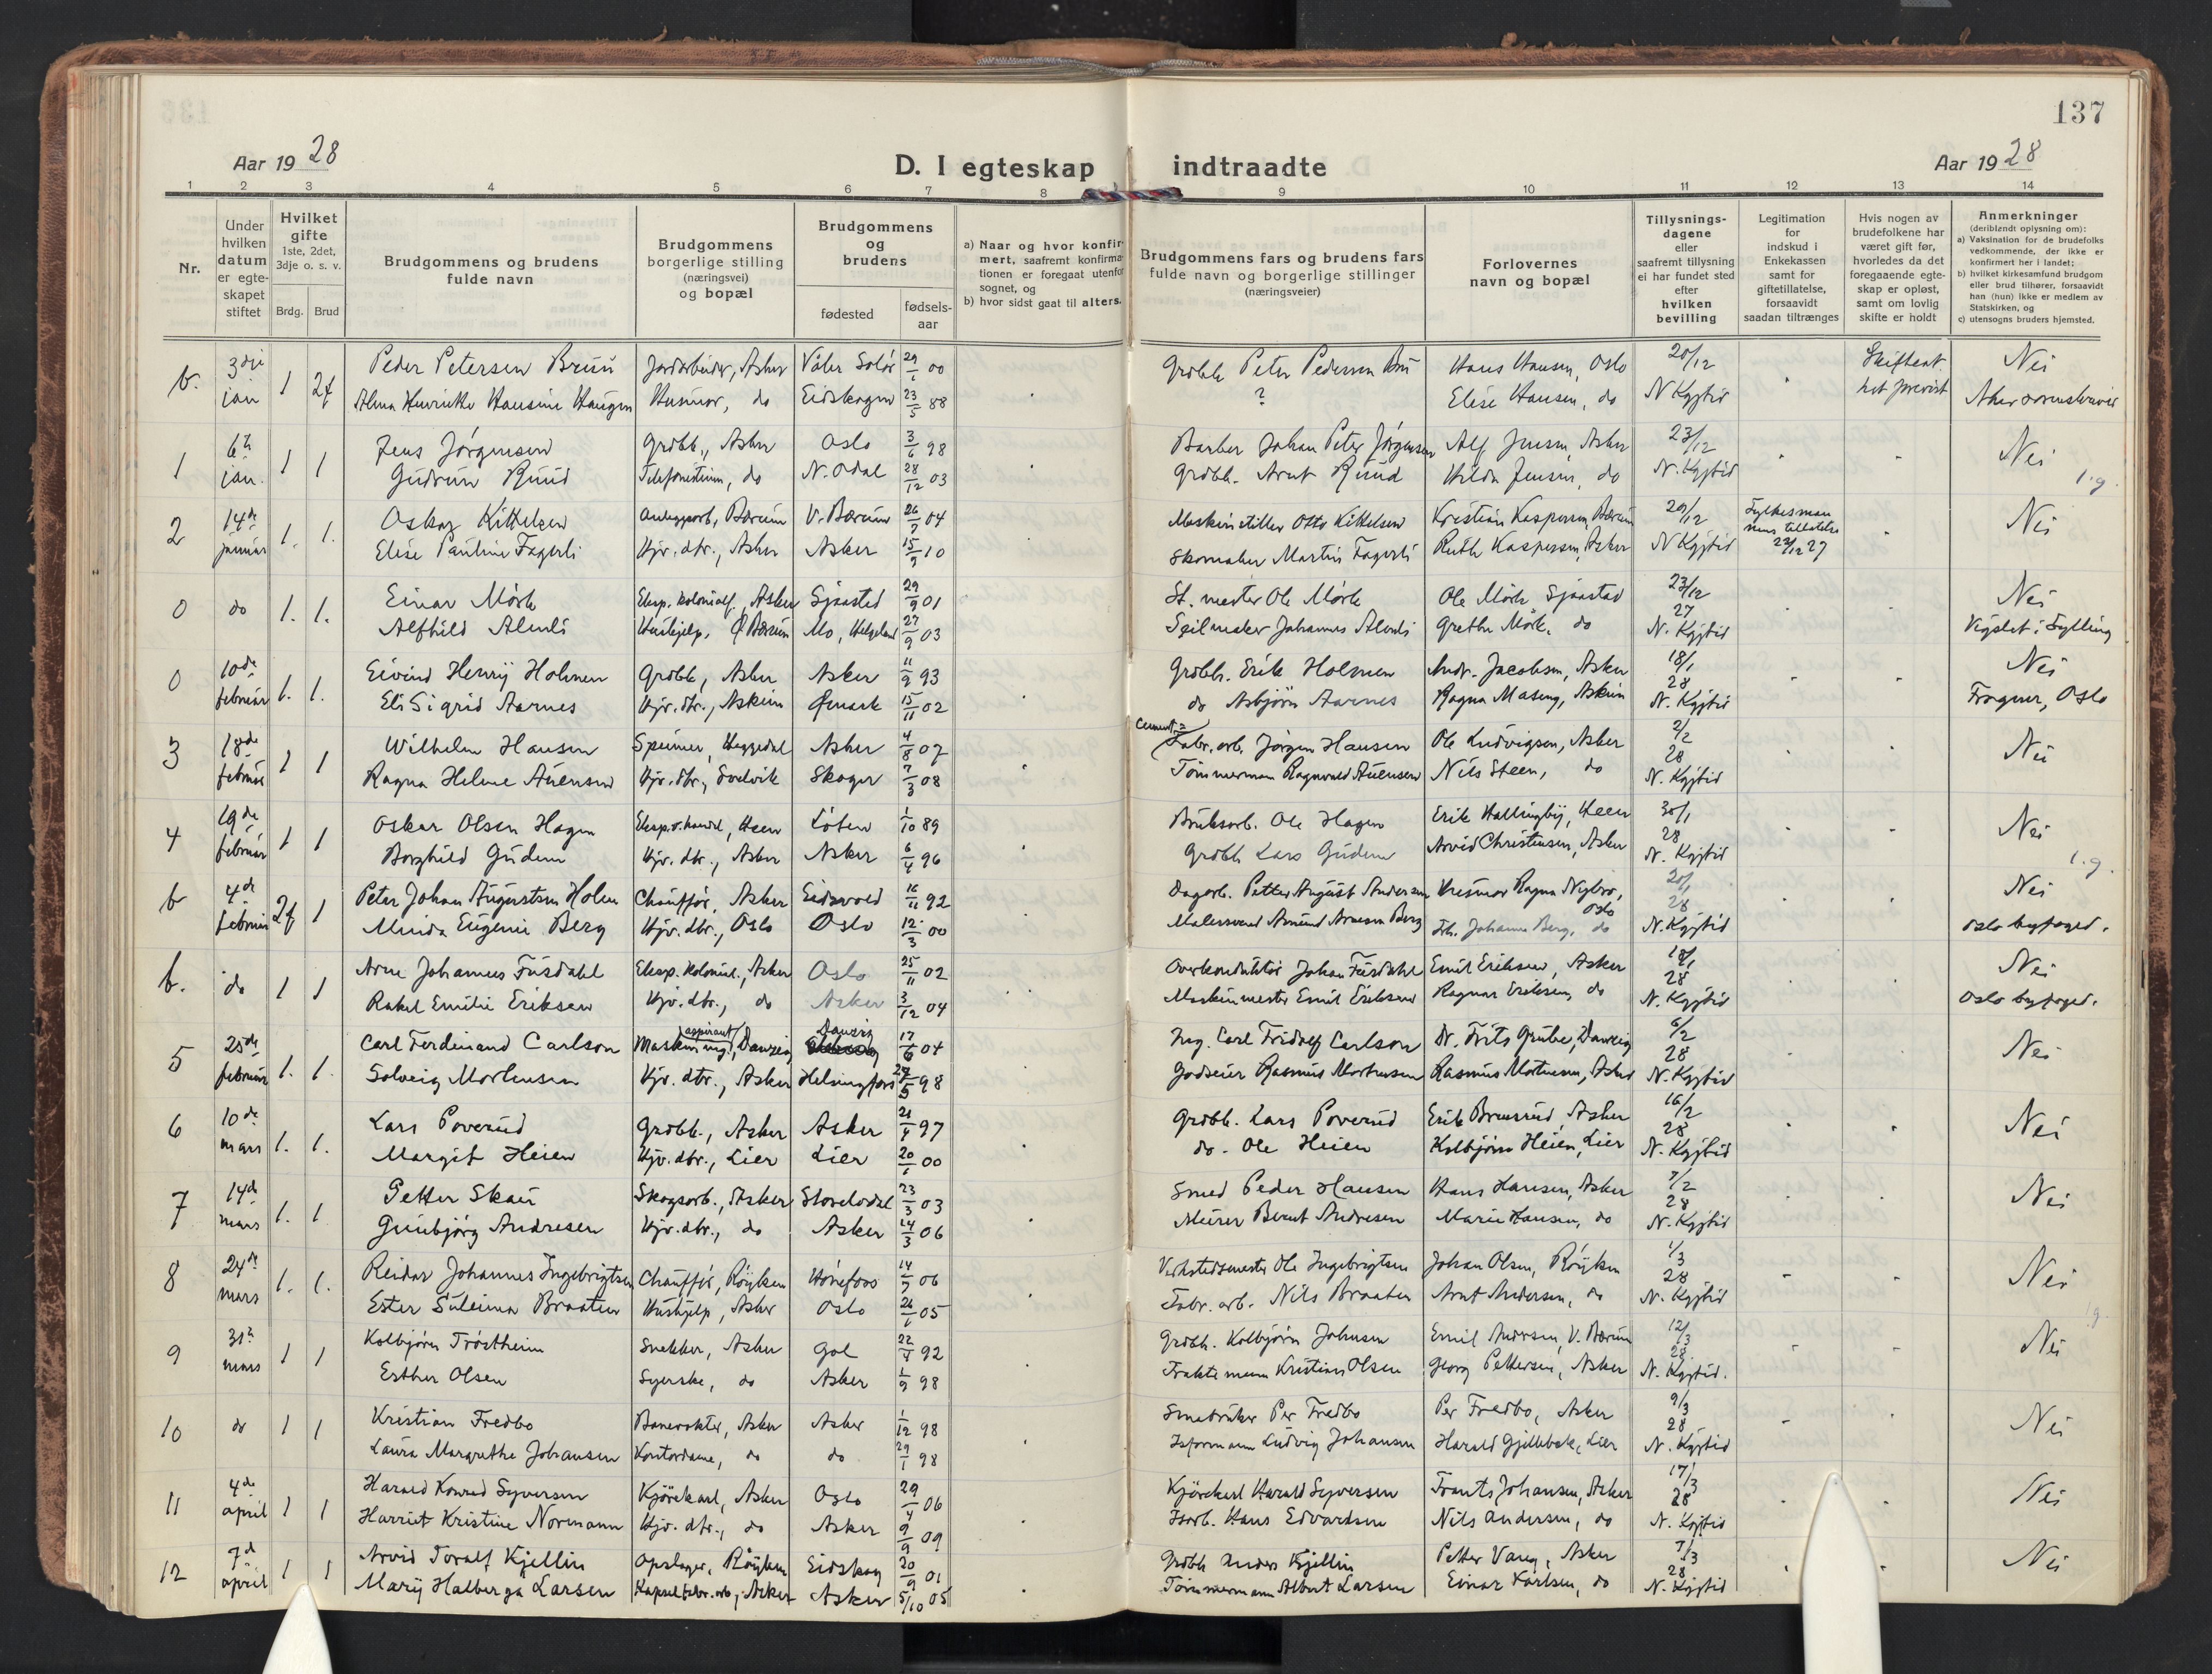 137
Aar 1928
D. I egteskap indtraadte
Aar 1928
1 2 3 4 5 6 7 8 9 10 11 12 13 14
Nr.
Under hvilken datum er egteskapet stiftet
Hvilket gifte 1ste, 2det, 3dje o. s. v.
Brdg. Brud
Brudgommens og brudens fulde navn
Brudgommens borgerlige stilling (næringsvei) og bopæl
Brudgommens og brudens
fødested
fødsels-aar
a) Naar og hvor konfirmert, saafremt konfirmationen er foregaat utenfor sognet, og
b) hvor sidst gaat til alters.
Brudgommens fars og brudens fars fulde navn og borgerlige stillinger (næringsveier)
Forlovernes navn og bopæl
Tillysnings-dagene eller saafremt tillysning ei har fundet sted efter hvilken bevilling
Legitimation for indskud i Enkekassen samt for giftetillatelse, forsaavidt saadan tiltrænges
Hvis nogen av brudefolkene har været gift før, hvorledes da det foregaaende egteskap er opløst, samt om lovlig skifte er holdt
Anmerkninger (deriblandt oplysning om):
a) Vaksination for de brudefolks vedkommende, der ikke er konfirmert her i landet;
b) hvilket kirkesamfund brudgom eller brud tilhører, forsaavidt han (hun) ikke er medlem av Statskirken, og
c) utensogns bruders hjemsted.
b. 3dje jan 1 2f Peder Petersen Bruu Jordarbeider, Asker Våler Solør 29/1 00 Grdbb. Peter Pedersen Hans Hansen, Oslo 20/12 Skifteat. Nei
Alma Henriette Hansine Haugen Husmor, do Eidskogen 23/5 88 ? Elise Hansen, do N Kgjtid Aker sorenskriver
1 6te jan. 1 1 Jens Jørgensen Grdbb., Asker Oslo 3/6 98 Barber Johan Peter Jørgensen Alf Jensen, Asker 23/12 Nei
Gudrun Ruud Telefonistinne, do N. Odal 28/12 03 Grdbb. Arnt Ruud Hilda Jensen, do N. Kgjtid
2 14de januar 1. 1. Oskar Kittelsen Anleggsarb., Bærum V. Bærum 26/7 04 Maskinstiller Otto Kittelsen Kristian Kaspersen, Bærum 20/12 Fylkesmannens tillatelse 22/12 27 Nei
Elise Pauline Fagerli Hjv. dtr., Asker Asker 15/9 10 Skomaker Martin Fagerli Ruth Kaspersen, Asker N Kgjtid
0 do 1. 1. Einar Mørk Eksp. kolonialf., Asker Sjaastad 29/9 01 St. mester Ole Mørk Ole Mørk Sjaastad 23/12 27 Nei
Alfhild Alerli Hushjelp, Ø Bærum Mo, Helgeland 27/9 03 Seilmaker Johannes Alerli Grethe Mørk, do N. Kgjtid Vigslet i Sylling
0 10de februar 1. 1. Eivind Henry Holmen Grdbb, Asker Asker 11/9 93 Grdbb. Erik Holmen Andr. Jacobsen, Asker 18/1 28 Nei
Eli Sigrid Aarnes Hjv. dtr., Askim 15/11 02 do Asbjørn Aarnes Ragna Maseng, Askim N. Kgjtid Frogner, Oslo
3 18de februar 1 1 Wilhelm Hansen Speiner, Heggedal Asker 4/8 07 Cement- Fabr. arb. Jørgen Hansen Ole Ludvigsen, Asker 2/2 28 Nei
Ragna Helene Auensen Hjv. dtr., Svelvik Skoger 7/3 08 Tømmermann Ragnvald Auensen Nils Steen, do N. Kgjtid
4 19de februar 1 1 Oskar Olsen Hagen Eksp. v. handel, Heen Løten 1/10 89 Bruksarb. Ole Hagen Erik Hallingby, Heen 30/1 28 Nei
Borghild Gudem Hjv. dtr., Asker Asker 6/4 96 Grdbb Lars Gudem Arvid Christensen, Asker N. Kgjtid
b 4de februar 2f 1 Peter Johan Augustsen Holm Chauffør, Asker Eidsvold 16/11 92 Dagarb. Petter August Andersen Husmor Ragna Nybro, Oslo 20/1 28 Nei
Minda Eugenie Berg Hjv. dtr., Oslo Oslo 12/3 00 Malersvend Amund Arnesen Berg Frk. Johanne Berg, do N. Kgjtid Oslo byfoged.
b. do 1 1 Arne Johannes Fusdahl Eksp. Kolonial., Asker Oslo 25/11 02 Overkonduktør Johan Fusdahl Emil Eriksen, Asker 18/1 28 Nei
Rakel Emilie Eriksen Hjv. dtr., do Asker 3/12 04 Maskinmester Emil Eriksen Ragnar Eriksen, do N. Kgjtid Oslo byfoged.
5 25de februar 1. 1 Carl Ferdinand Carlson Maskining. aspirant, Danzig Danzig 17/6 04 Ing. Carl Fridolf Carlson Dr. Frits Grube, Danzig 6/2 28 Nei
Solveig Mortensen Hjv. dtr., Asker Helsingfors 27/5 98 Godseier Rasmus Mortensen Rasmus Mortensen, Asker N. Kgjtid
6 10de mars 1. 1. Lars Poverud Grdbb., Asker Asker 21/4 97 Grdbb. Lars Poverud Erik Brusrud, Asker 16/2 28 Nei
Margit Heien Hjv. dtr., Lier Lier 20/1 00 do. Ole Heien Kolbjørn Heien, Lier N. Kgjtid
7 14de mars 1. 1 Petter Skau Skogsarb., Asker Storelvdal 23/3 03 Smed Peder Hansen Hans Hansen, Asker 7/2 28 Nei
Gunbjørg Andresen Hjv. dtr., do Asker 24/3 06 Murer Bernt Andresen Marie Hansen, do N. Kgjtid
8 24de mars 1. 1. Reidar Johannes Ingebrigtsen Chauffør, Røyken Hønefoss 14/7 06 Verkstedmester Ole Ingebrigtsen Johan Olsen, Røyken 1/3 28 Nei
Ester Suleima Braaten Hushjelp, Asker Oslo 26/1 05 Fabr. arb. Nils Braaten Arnt Andersen, do N. Kgjtid
9 31te mars 1 1 Kolbjørn Trøstheim Snekker, Asker Gol 22/4 92 Grdbb. Kolbjørn Johnsen Emil Andersen, V. Bærum 12/3 28 Nei
Esther Olsen Syerske, do Asker 1/9 98 Fraktemann Kristian Olsen Georg Pettersen, Asker N. Kgjtid.
10 do 1 1 Kristian Fredbo Banevokter, Asker Asker 1/12 98 Smabruker Per Fredbo Per Fredbo, Asker 9/3 28 Nei
Laura Margrethe Johansen Kontordame, do do 29/1 98 Isformann Ludvig Johansen Harald Gjellebek, Lier N. Kgjtid
11 4de april 1 1 Harald Konrad Syversen Kjørekarl, Asker Oslo 29/4 06 Kjørekarl Harald Syversen Frants Johansen, Asker 17/3 28 Nei
Harriet Kristine Normann Hjv. dtr., do Asker 9/9 09 Isarb. Hans Edvardsen Nils Andersen, do N. Kgjtid
12 7de april 1 1 Arvid Toralf Kjellin Opslager, Røyken Eidskog 20/9 01 Grdbb Anders Kjellin Petter Vang, Asker 7/3 28 Nei
Mary Halberga Larsen Kapselfabr. arb., Asker Asker 5/10 05 Tømmermann Albert Larsen Einar Karlsen, do N. Kgjtid